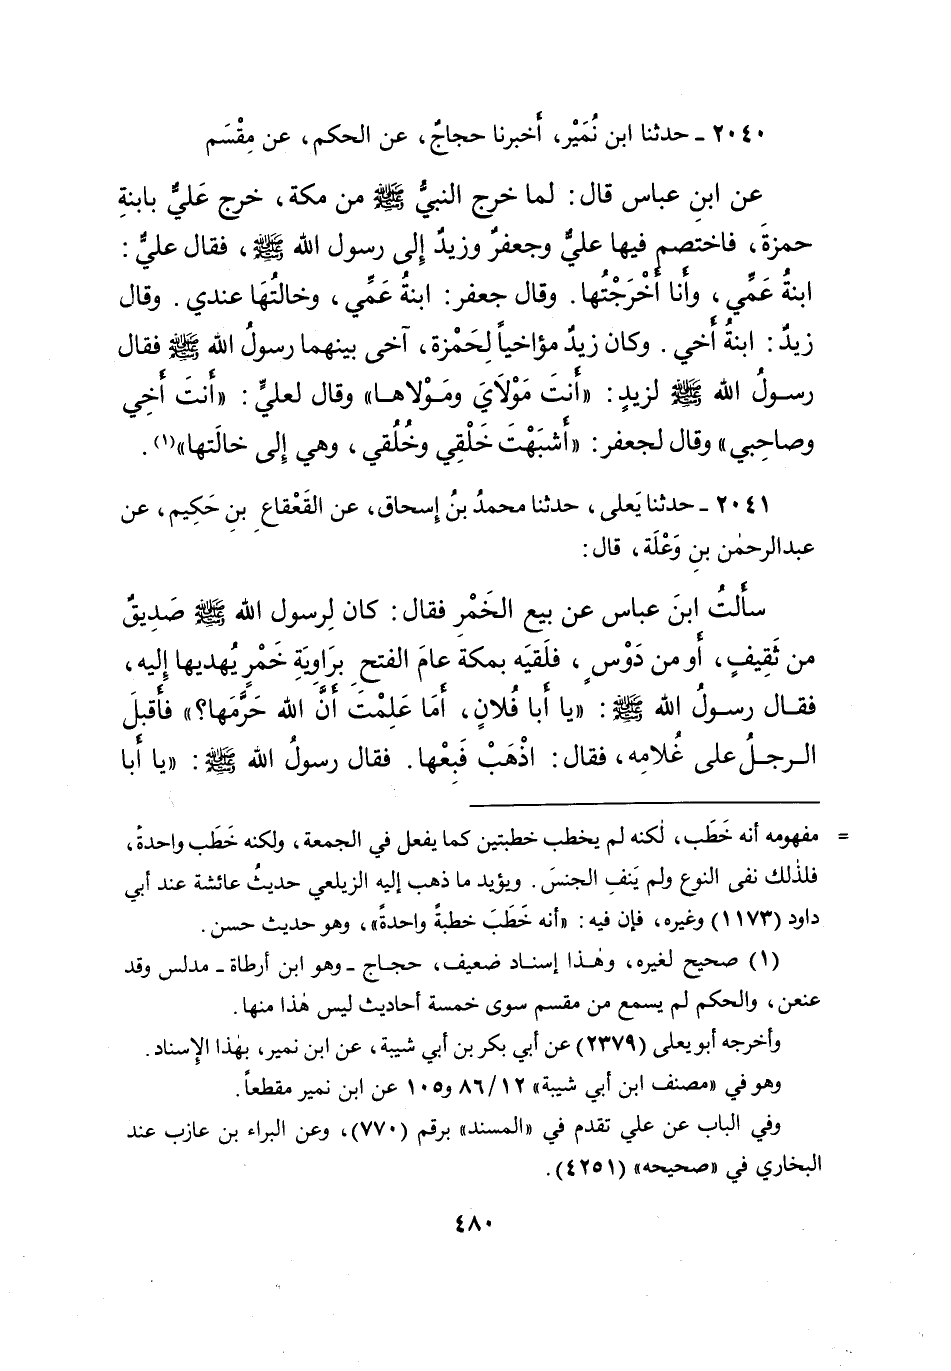 ٢٠٤٠ ـ حدثنا ابن نُمَيْر، أَخبرنا حجاجٌ، عن الحكم، عن مِقْسَم
عن ابنِ عباس قال: لما خرج النبيُّ ﷺ من مكة، خرج عَليٌّ بابنةِ
حمزةَ، فاختصم فيها عليٌّ وجعفرٌ وزيدٌ إِلى رسول الله ﷺ، فقال عليٌّ:
ابنةُ عَمِّي، وأَنا أَخْرَجْتُها. وقال جعفر: ابنةُ عَمِّي، وخالتُهَا عندي. وقال
زيدٌ: ابنةُ أَخي. وكان زيدٌ مؤاخياً لِحَمْزة، آخى بينهما رسولُ الله ﷺ فقال
رسولُ الله ﷺ لزيدٍ: «أَنتَ مَوْلَايَ ومَوْلاها» وقال لعليٍّ: «أَنتَ أَخِي
وصاحِبي» وقال لجعفر: «أَشبَهْتَ خَلْقِي وخُلُقي، وهي إِلى خالَتها»(١).
٢٠٤١ ـ حدثنا يَعلى، حدثنا محمدُ بنُ إِسحاق، عن القَعْقاعِ بنِ حَكِيم، عن
عبدالرحمٰن بنِ وَعْلَة، قال:
سأَلتُ ابنَ عباس عن بيع الخَمْرِ فقال: كان لِرسول الله ﷺ صَدِيقٌ
من ثَقِيفٍ، أَو من دَوْسٍ، فلَقيَه بمكة عامَ الفتحِ بِرَاوِيَةِ خَمْرٍ يُهديها إِليه،
فقال رسولُ الله ﷺ: «يا أَبا فُلانٍ، أَمَا عَلِمْتَ أَنَّ الله حَرَّمَها؟» فأَقبلَ
الرجلُ على غُلامِه، فقال: اذْهَبْ فَبِعْها. فقال رسولُ الله ﷺ: «يا أَبا
= مفهومه أنه خَطَب، لكنه لم يخطب خطبتين كما يفعل في الجمعة، ولكنه خَطَب واحدةً،
فلذٰلك نفى النوع ولم يَنفِ الجنسَ. ويؤيد ما ذهب إليه الزيلعي حديثُ عائشة عند أبي
داود (١١٧٣) وغيره، فإن فيه: «أنه خَطَبَ خطبةً واحدةً»، وهو حديث حسن.
(١) صحيح لغيره، وهٰذا إسناد ضعيف، حجاج ـ وهو ابن أرطاة ـ مدلس وقد
عنعن، والحكم لم يسمع من مقسم سوى خمسة أحاديث ليس هٰذا منها.
وأخرجه أبو يعلى (٢٣٧٩) عن أبي بكر بن أبي شيبة، عن ابن نمير، بهٰذا الإسناد.
وهو في «مصنف ابن أبي شيبة» ٨٦/١٢ و١٠٥ عن ابن نمير مقطعاً.
وفي الباب عن علي تقدم في «المسند» برقم (٧٧٠)، وعن البراء بن عازب عند
البخاري في «صحيحه» (٤٢٥١).
٤٨٠